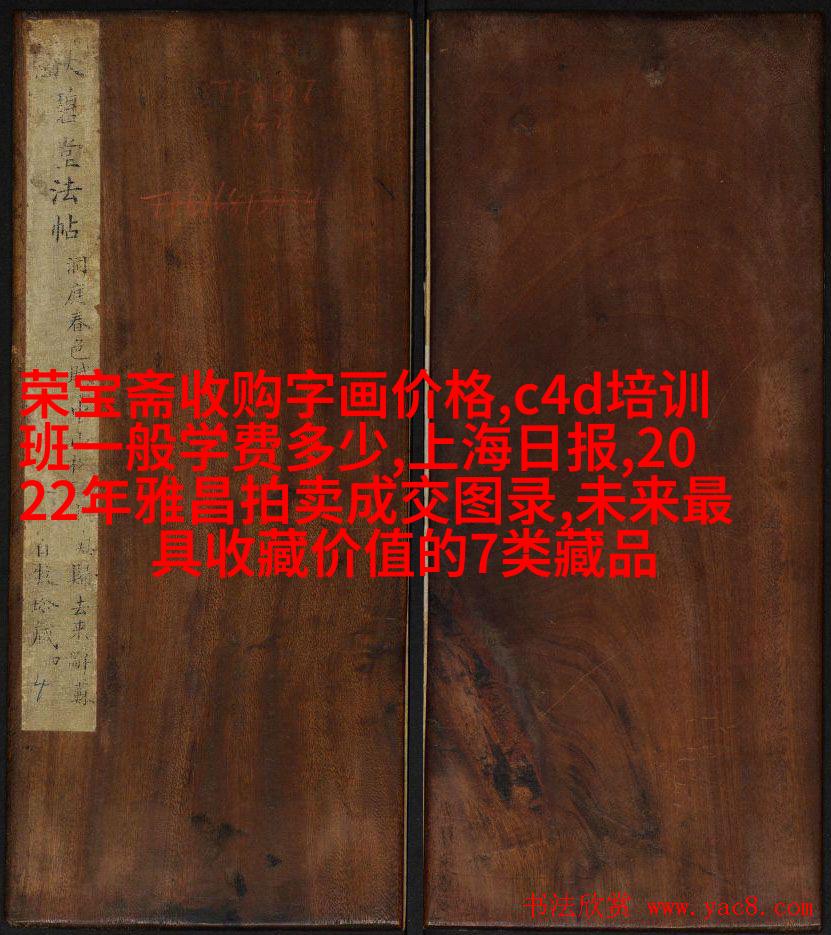 碧堂法帖
洞庭春色
去來辭
荣宝斋收购字画价格,c4d培训
班一般学费多少,上海日报,20
22年雅昌拍卖成交图录,未来最
具收藏价值的7类藏品
书法欣赏 www.yac8.com